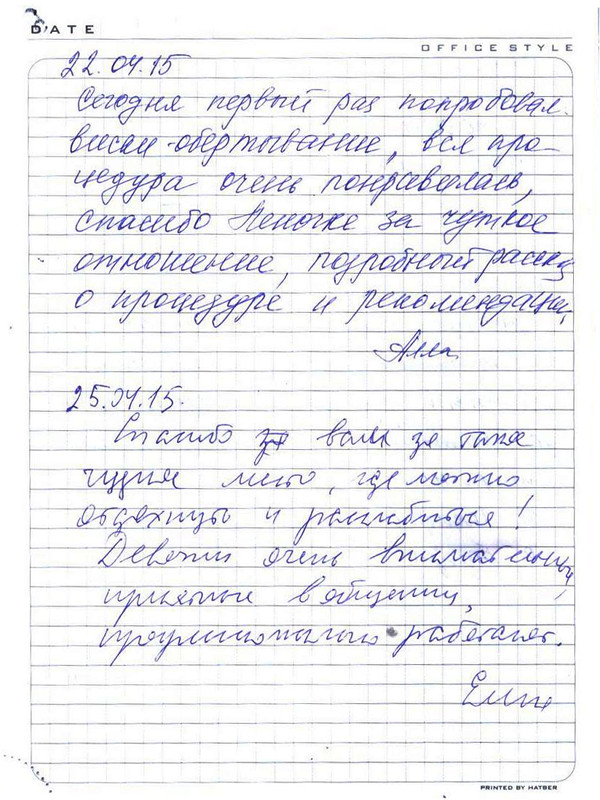 DATE
OFFICE STYLE
22.04.15
Сегодня первый раз попробовал
виски-обертывание, вся про-
цедура очень понравилась,
спасибо Леночке за чуткое
отношение, подробный рассказ
о процедуре и рекомендации.
Алла
25.04.15.
Спасибо вам за такое
чудное место, где можно
отдохнуть и расслабиться!
Девочки очень внимательные,
приятные в общении,
профессионально работают.
PRINTED BY HATBER